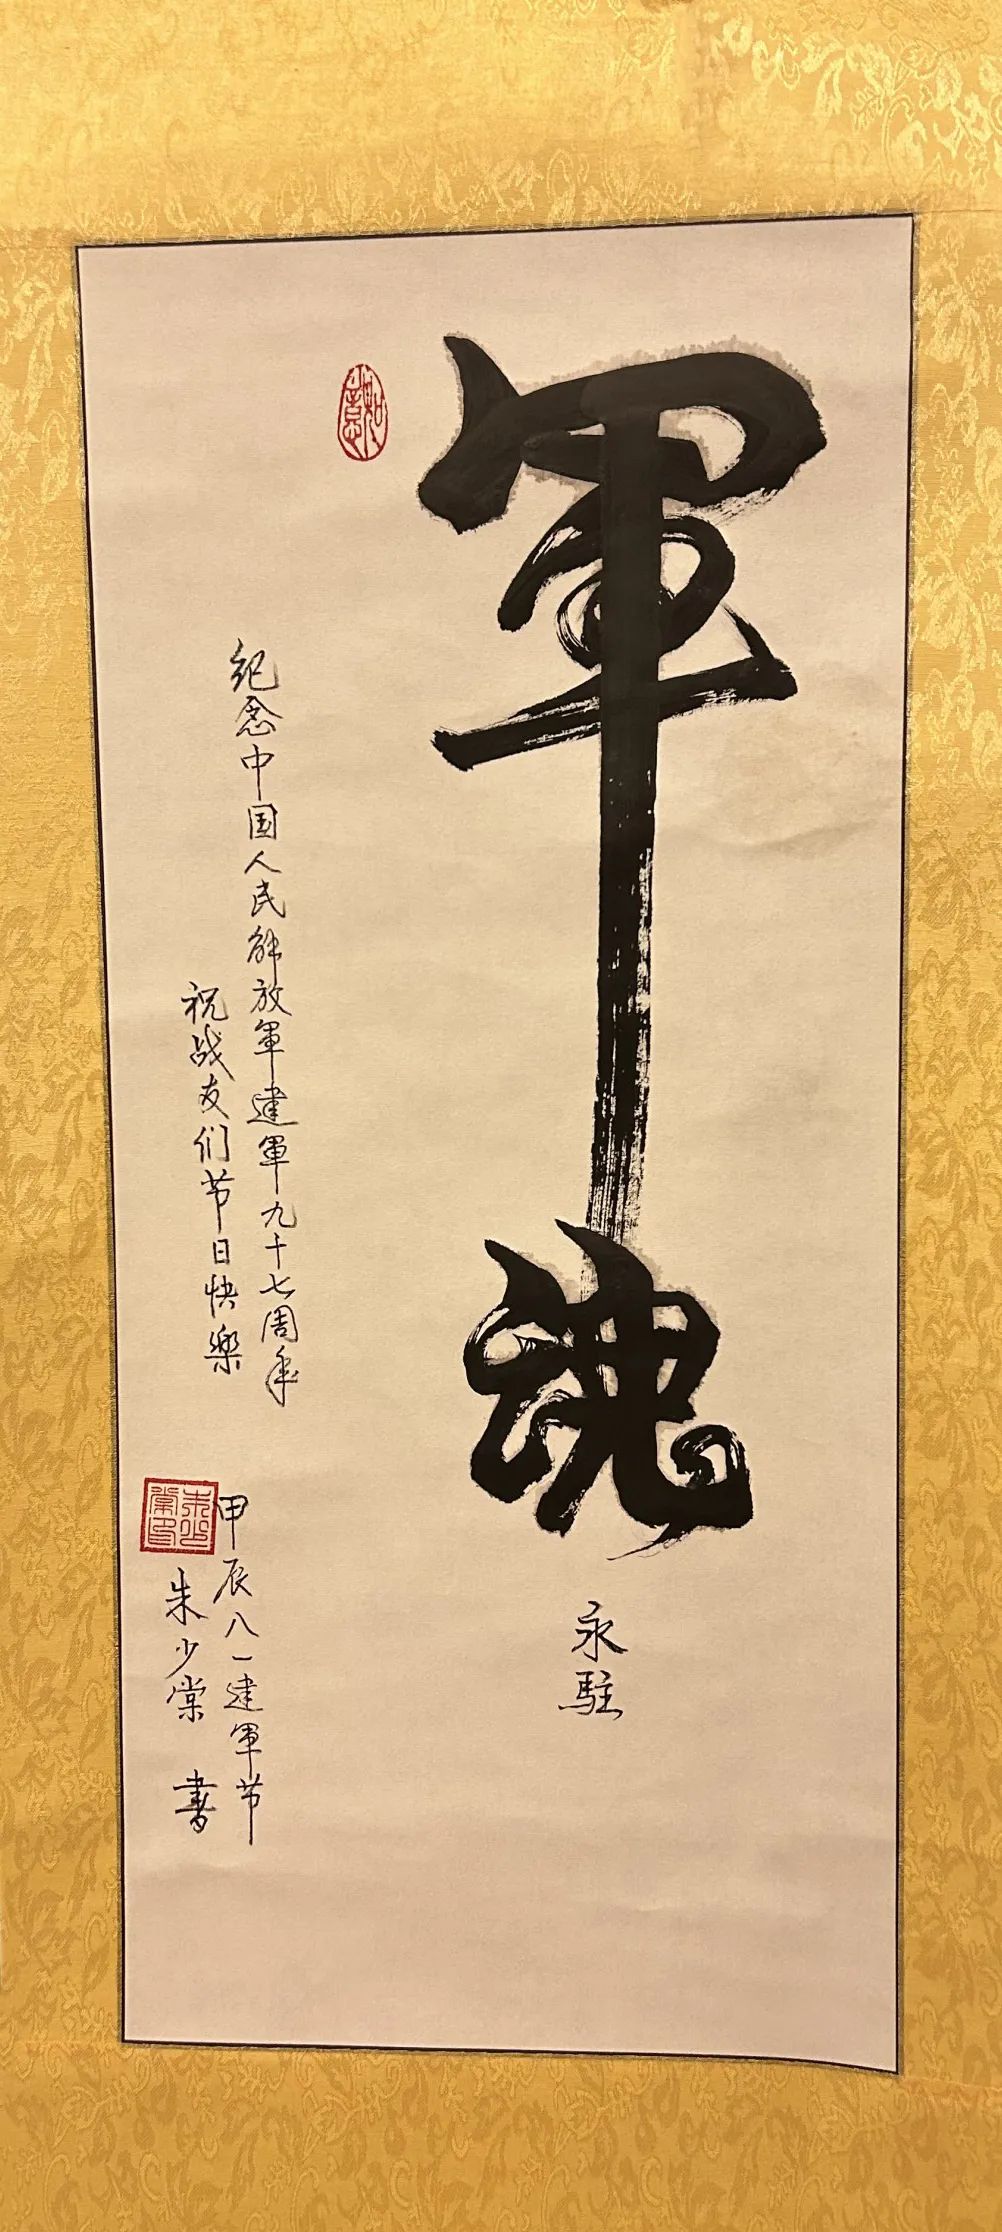 軍魂
永駐
纪念中国人民解放軍建軍九十七周年
祝战友们节日快樂
甲辰八一建軍节
朱少棠 書
如意
朱少棠印